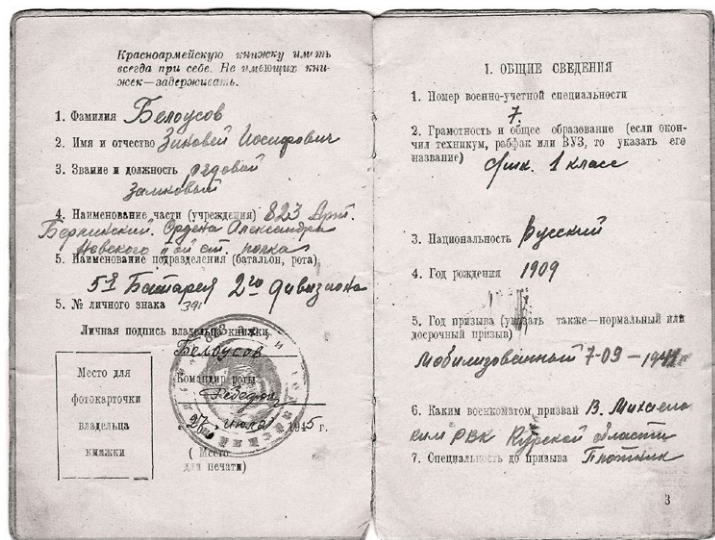 Красноармейскую книжку иметь
всегда при себе. Не имеющих кни-
жек—задерживать.
1. Фамилия Белоусов
2. Имя и отчество Зиновей Иосифович
3. Звание и должность рядовой
Замковый
4. Наименование части (учреждения) 823 Арт.
Берлинский Ордена Александра
Невского
5. Наименование подразделения (батальон, рота)
5я Батарея 2го дивизиона
5. № личного знака 391
Личная подпись владельца книжки
Белоусов
Командир роты
27 июля 1945 г.
( Место
для печати)
Место для
фотокарточки
владельца
книжки
I. ОБЩИЕ СВЕДЕНИЯ
1. Номер военно-учетной специальности
7.
2. Грамотность и общее образование (если окон-
чил техникум, рабфак или ВУЗ, то указать его
название)
1 класс
3. Национальность Русский
4. Год рождения 1909
5. Год призыва (указать также—нормальный или
досрочный призыв)
Мобилизованный 7-09-1941
6. Каким военкоматом призван В. Михайлов
ским РВК Курской области
7. Специальность до призыва Плотник
3